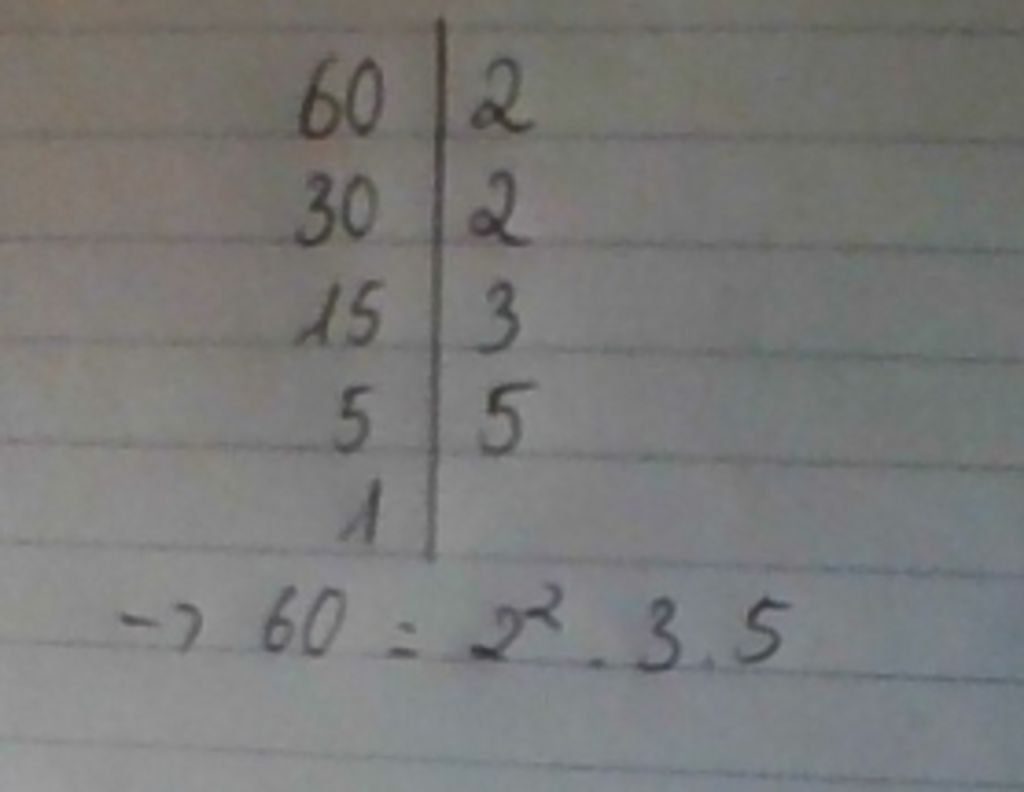 60 | 2
30 | 2
15 | 3
5 | 5
1 |
-> 60 = 2² . 3 . 5